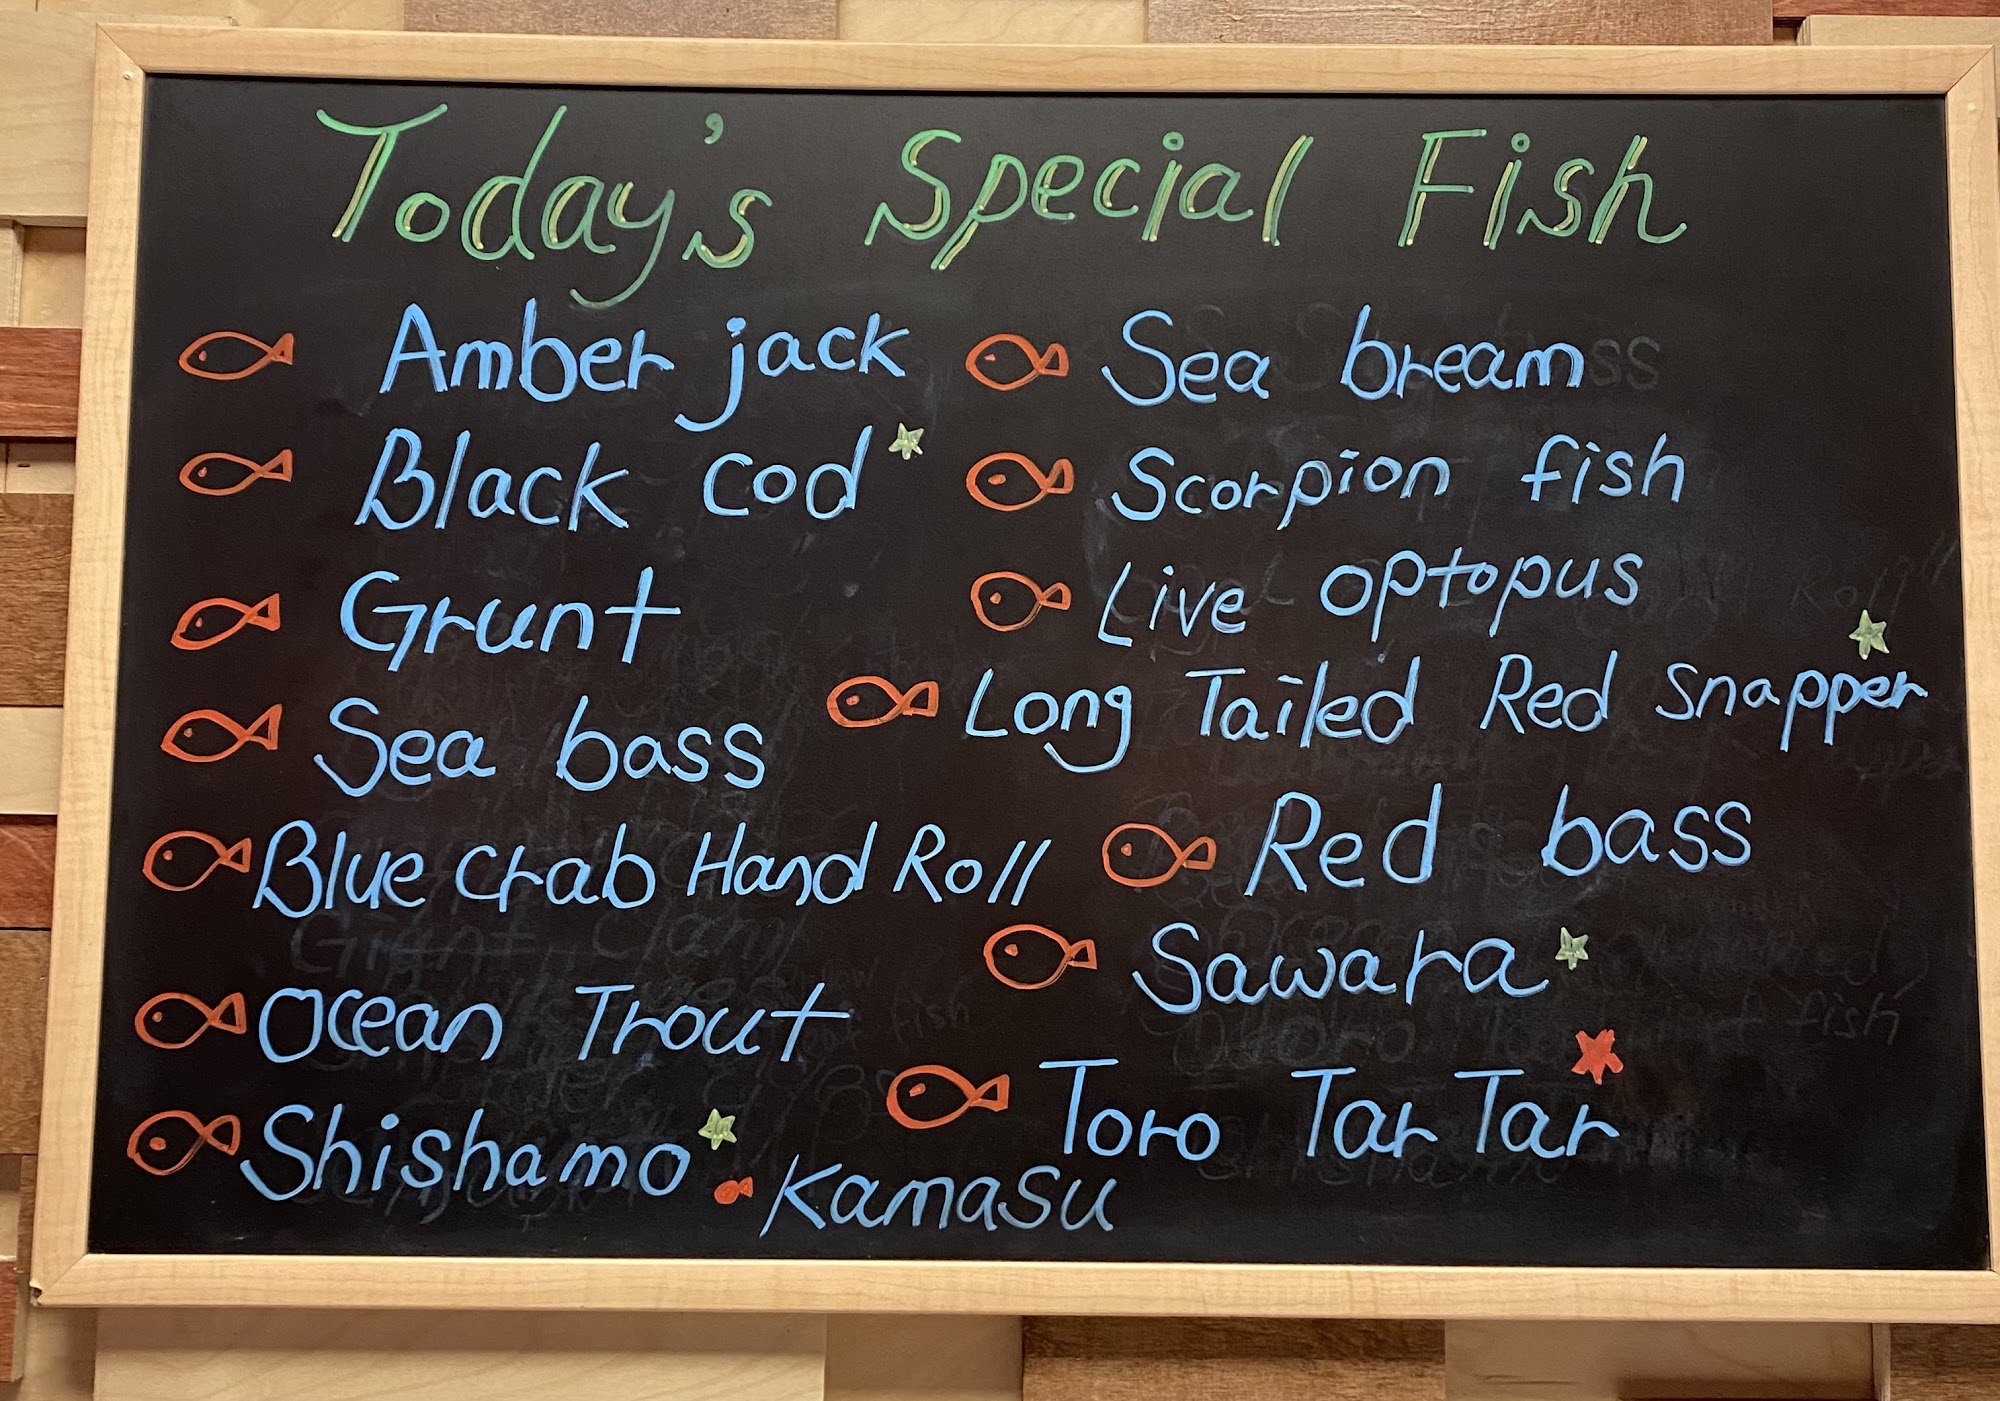 Today's Special Fish
Amber jack
Black cod
Grunt
Sea bass
Blue Crab Hand Roll
Ocean Trout
Shishamo
Kamasu
Sea bream
Scorpion fish
Live optopus
Long Tailed Red Snapper
Red bass
Sawara
Toro Tar Tar